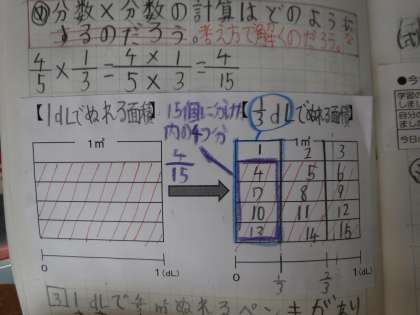 め 分数×分数の計算はどのよう
するのだろう。考え方で解くのだろう。
4/5 × 1/3 = 4×1/5×3 = 4/15
【1dLでぬれる面積】
15個に分けた
内の4つ分
4/15
【1/3dLでぬれる面積】
1㎡
0 1(dL)
1㎡
1 2 3
4 5 6
7 8 9
10 11 12
13 14 15
0 1/3 2/3 1(dL)
3 1dLで
ぬれるペンキがあり
●今
学習の
しまし
自分の
まし
今日